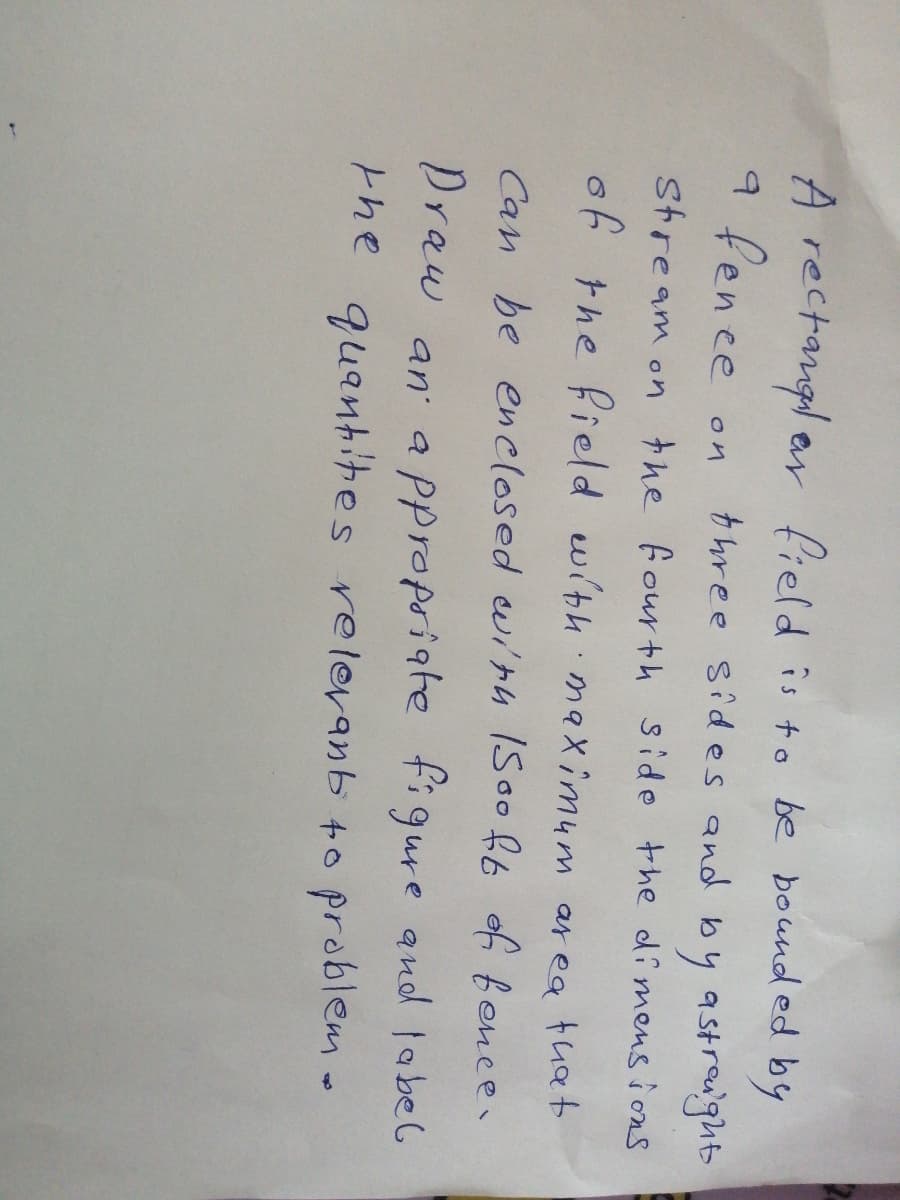 A rectangular field is to be bounded by
a fence on three sides and by astraight
stream on the fourth side the dimensions
of the field with maximum area that
can be enclosed with 1500ft of fence.
Draw an appropriate figure and label
the quantites relevant to problem.